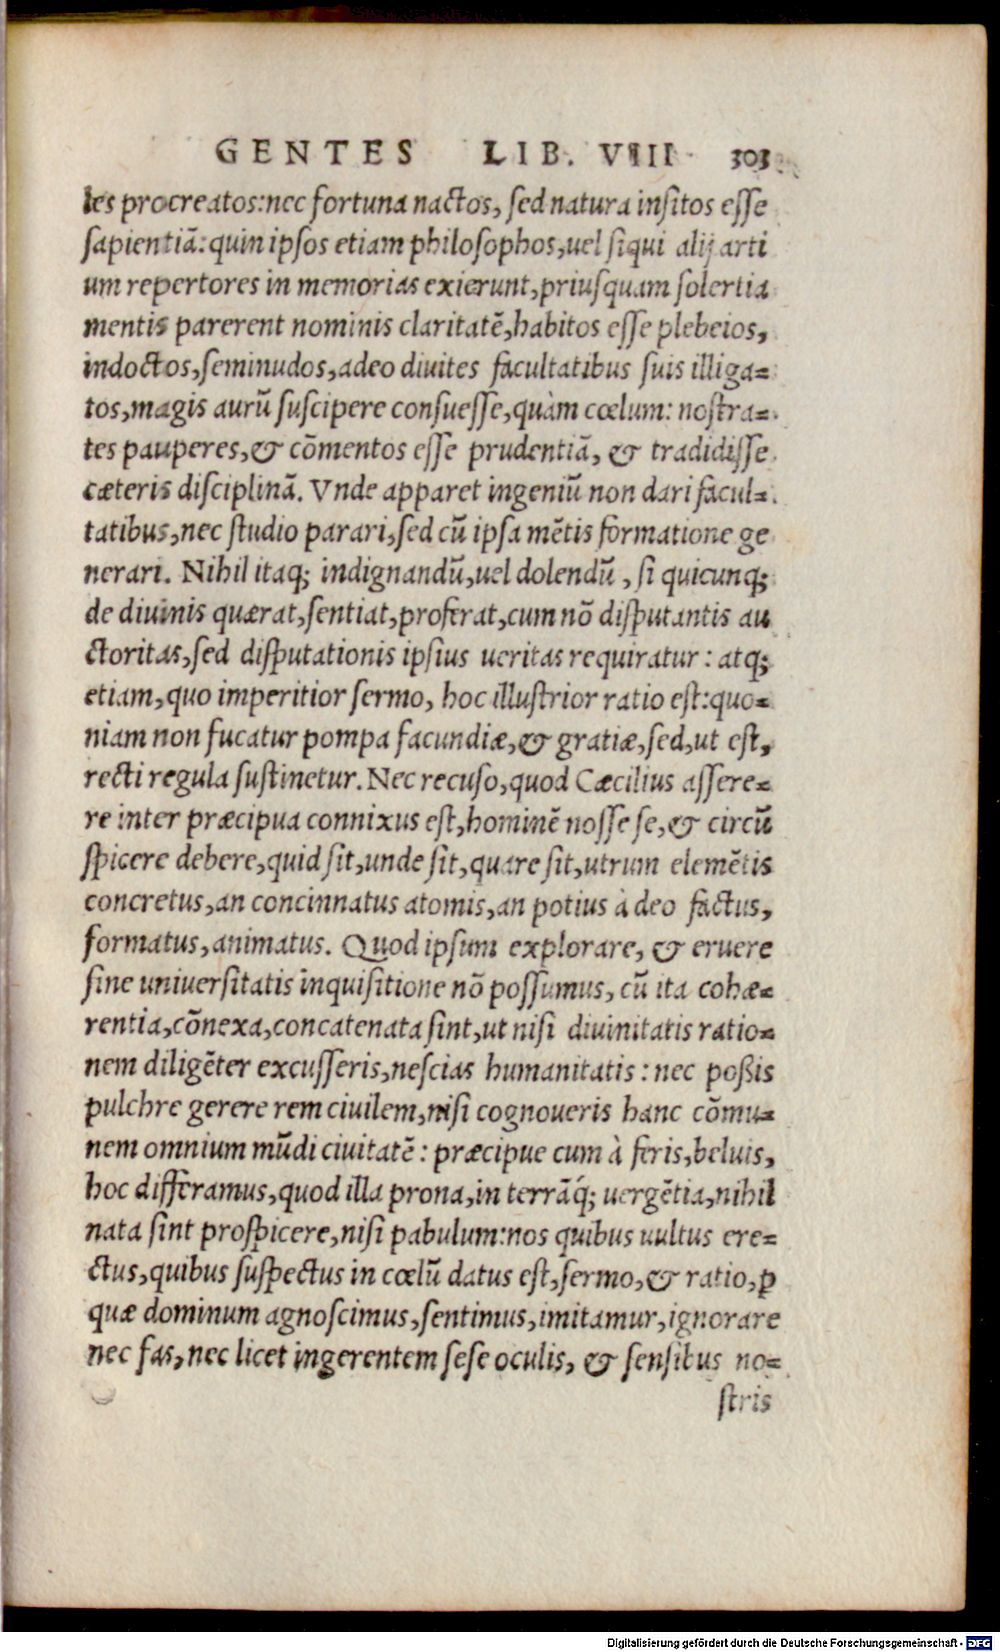 GENTES LIB. VIII 303
les procreatos:nec fortuna nactos, sed natura insitos esse
sapientiā: quin ipsos etiam philosophos,uel siqui alij arti
um repertores in memorias exierunt,priusquam solertia
mentis parerent nominis claritatē,habitos esse plebeios,
indoctos,seminudos,adeo diuites facultatibus suis illiga=
tos,magis aurū suscipere consuesse,quàm cœlum: nostra=
tes pauperes,& cōmentos esse prudentiā, & tradidisse
cæteris disciplinā. Vnde apparet ingeniū non dari facul=
tatibus,nec studio parari,sed cū ipsa mētis formatione ge
nerari. Nihil itaq; indignandū,uel dolendū, si quicunq;
de diuinis quærat,sentiat,proferat,cum nō disputantis au
ctoritas,sed disputationis ipsius ueritas requiratur: atq;
etiam,quo imperitior sermo, hoc illustrior ratio est:quo=
niam non fucatur pompa facundiæ,& gratiæ,sed,ut est,
recti regula sustinetur. Nec recuso,quod Cæcilius assere=
re inter præcipua connixus est,hominē nosse se,& circū
spicere debere,quid sit,unde sit,quare sit,utrum elemētis
concretus,an concinnatus atomis,an potius à deo factus,
formatus,animatus. Quod ipsum explorare, & eruere
sine uniuersitatis inquisitione nō possumus, cū ita cohæ=
rentia,cōnexa,concatenata sint,ut nisi diuinitatis ratio=
nem diligēter excusseris,nescias humanitatis: nec poßis
pulchre gerere rem ciuilem,nisi cognoueris hanc cōmu=
nem omnium mūdi ciuitatē: præcipue cum à feris,beluis,
hoc differamus,quod illa prona,in terrāq́; uergētia,nihil
nata sint prospicere,nisi pabulum:nos quibus uultus ere=
ctus,quibus suspectus in cœlū datus est,sermo,& ratio,ꝑ
quæ dominum agnoscimus,sentimus,imitamur,ignorare
nec fas,nec licet ingerentem sese oculis, & sensibus no=
stris
Digitalisierung gefördert durch die Deutsche Forschungsgemeinschaft - DFG